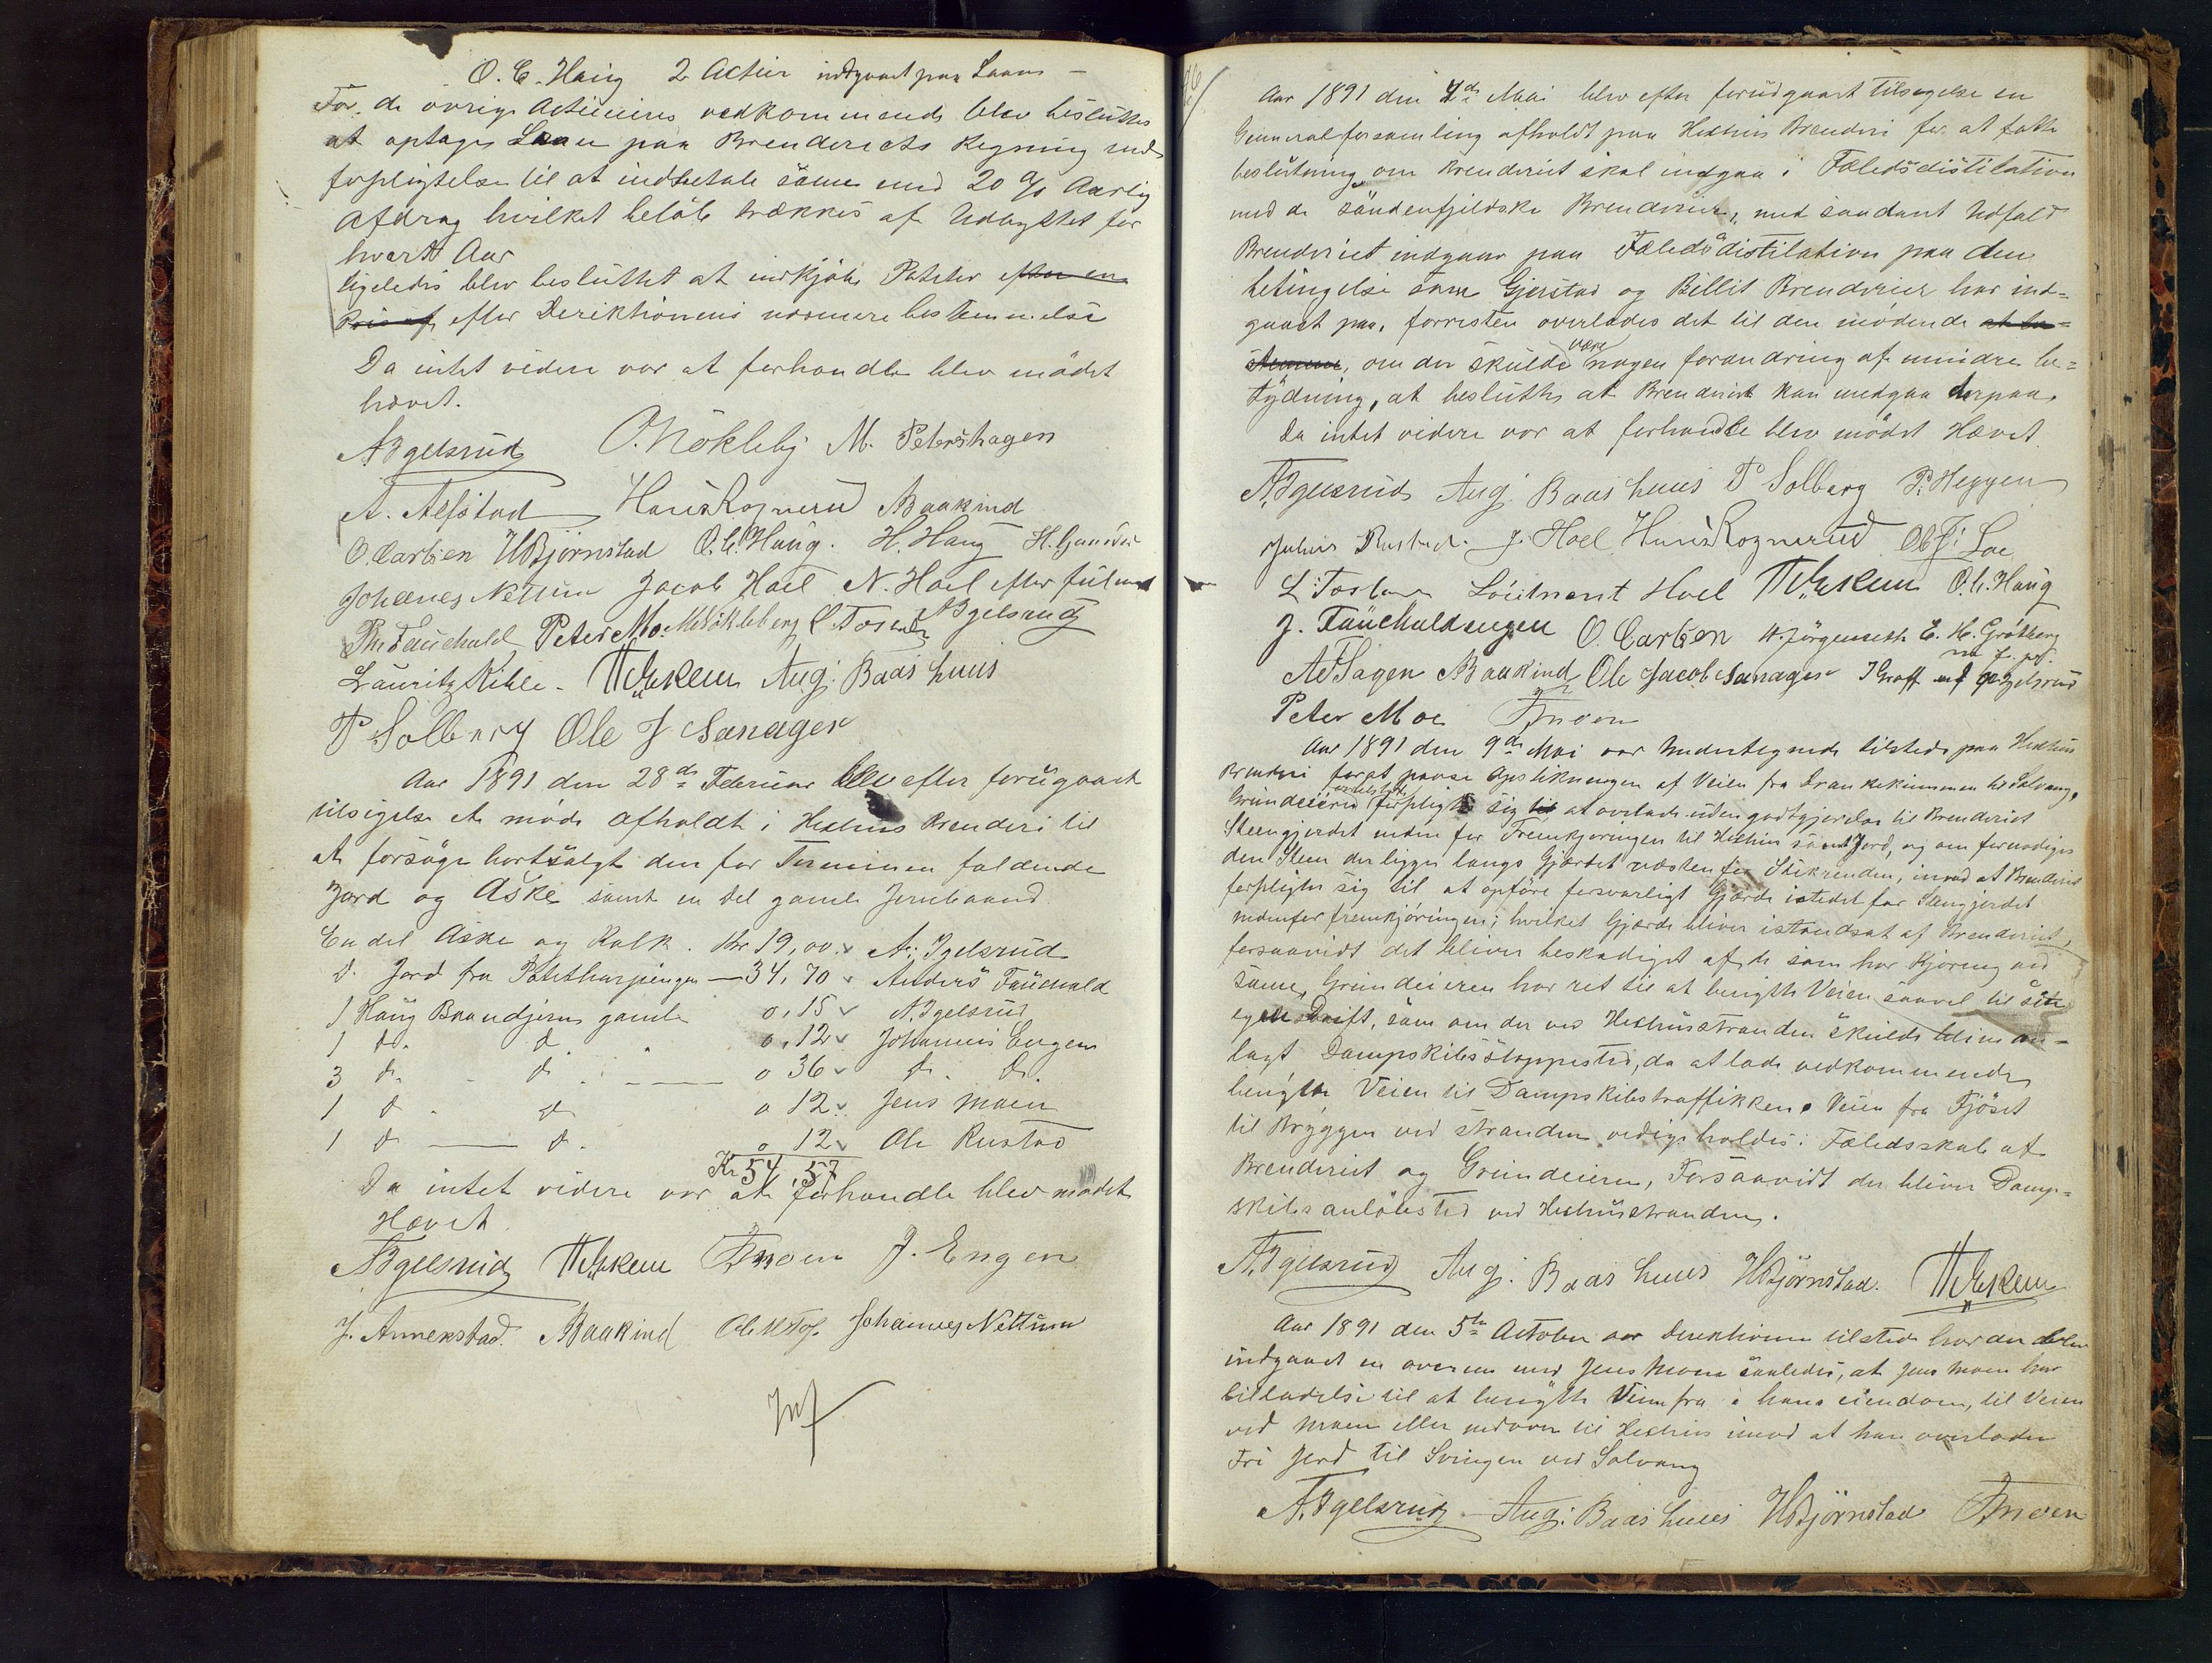 O. C. Haug 2 Actier indgaaet paa Laans –
For de övrige Actieeires vedkommende blev besluttet
at optage Laan paa Brenderiets Regning med
forpligtelse til at indbetale samme med 20 % Aarlig
Afdrag hvilket belöb trækkes af Udbyttet for
hvert Aar
ligeledes blev besluttet at indkjöbe Poteter efter en
Pris af efter Direktionens nærmere bestemmelse
Da intet videre var at forhandle blev mödet
hævet.
A Igelsrud O. Nökleby M. Petershagen
A. Alfstad Hans Rognerud A Baakind
O. Carlsen H Björnstad O. C. Haug. H. Haug H.
Johannes Nettum Jacob Hoel N. Hoel efter fulmagt
Peter Mo. C. Tosen A Igelsrud
Lauritz Kihle. Aug: Baashuus
P Solberg Ole J Sanager
Aar 1891 den 28de Februar blev efter forugaaet
tilsigelse et möde afholdt i Hexhus Brenderi til
at forsöge bortsalgt den for Terminen faldende
Jord og Aske samt en del gamle Jernbaand
En del Aske og Kalk. Kr 19,00. A. Igelsrud
d. Jord fra Potetharpingen — 34,70 Anders Fauchald
1 Haug Baandjern gamle 0,15 A. Igelsrud
1 do. do. " 0,12 Johannes Engen
3 do. - do. - — 0 36 do. do.
1 do. do 0 12 Jens Moen
1 do — do. 0 12 Ole Rustad
Kr 54,57
Da intet videre var at forhandle blev mödet
Hævet.
A Igelsrud J. Engen
J. Annexstad. A Baakind Johannes Nettum
Aar 1891 den 2de Mai blev efter forudgaaet tilsigelse en
Generalforsamling afholdt paa Hexhus Brenderi for at fatte
beslutning om Brenderiet skal indgaa i Fælledsdistilation
med de söndenfjeldske Brenderier, med saadant Udfald
Brenderiet indgaar paa Fælledsdistilation paa den
betingelse som Gjerstad og Billit Brenderier har ind=
gaaet paa, forresten overlades det til den mödende at be=
stemme, om der skulde være nogen forandring af mindre be=
tydning, at beslutte at Brenderiet kan indgaa derpaa.
Da intet videre var at forhandle blev mödet Hævet.
A. Igelsrud Aug: Baashuus P Solberg P. Heggen
Julius Rustad. J. Hoel Hans Rognerud Ole J: Loe
L Löitnant Hoel O. C. Haug
J. Fauchaldsengen O. Carlsen E. H. Grötberg
A Baakind Ole Jacob Sanager A Igelsrud
Peter Moe
Aar 1891 den 9de Mai var Undertegnede tilstede paa Hexhus
Brenderi for at paase Opstikningen af Veien fra Drankekummen til Solvang,
Grundeieren forpligter sig til at overlade uden godtgjörelse til Brenderiet
Steengjerdet neden for Fremkjöringen til Hexhus samt Jord, og om fornödiges
den Sten der ligger langs Gjærdet vesten for Stikrenden, imod at Brenderiet
forpligter sig til at opföre forsvarligt Gjærde istedet for Stengjerdet
nedenfor fremkjöringen; hvilket Gjærde bliver istandsat af Brenderiet,
forsaavidt det bliver beskadiget af de som har Kjöring ved
samme, Grundeieren har ret til at benytte Veien saavel til sin
egen Drift, som om der ved Hexhusstranden skulde blive an=
lagt Dampskibsstoppested, da at lade vedkommende
benytte Veien til Dampskibstraffikken. Veien fra Fjöset
til Bryggen ved stranden vedligeholdes i Fælledsskab af
Brenderiet og Grundeieren, Forsaavidt der bliver Damp=
skibsanlöbsted ved Hexhusstranden.
A. Igelsrud Aug: Baashuus H Björnstad.
Aar 1891 den 5te October var Direktionen tilstede hvor der blev
indgaaet en overens med Jens Moen saaledes, at Jens Moen har
tilladelse til at benytte Veien fra hans eiendom, til Veien
ved Moen eller nedover til Hexhus imod at han overlader
Fri Jord til Svingen ved Solvang
A. Igelsrud – Aug: Baashuus H Björnstad